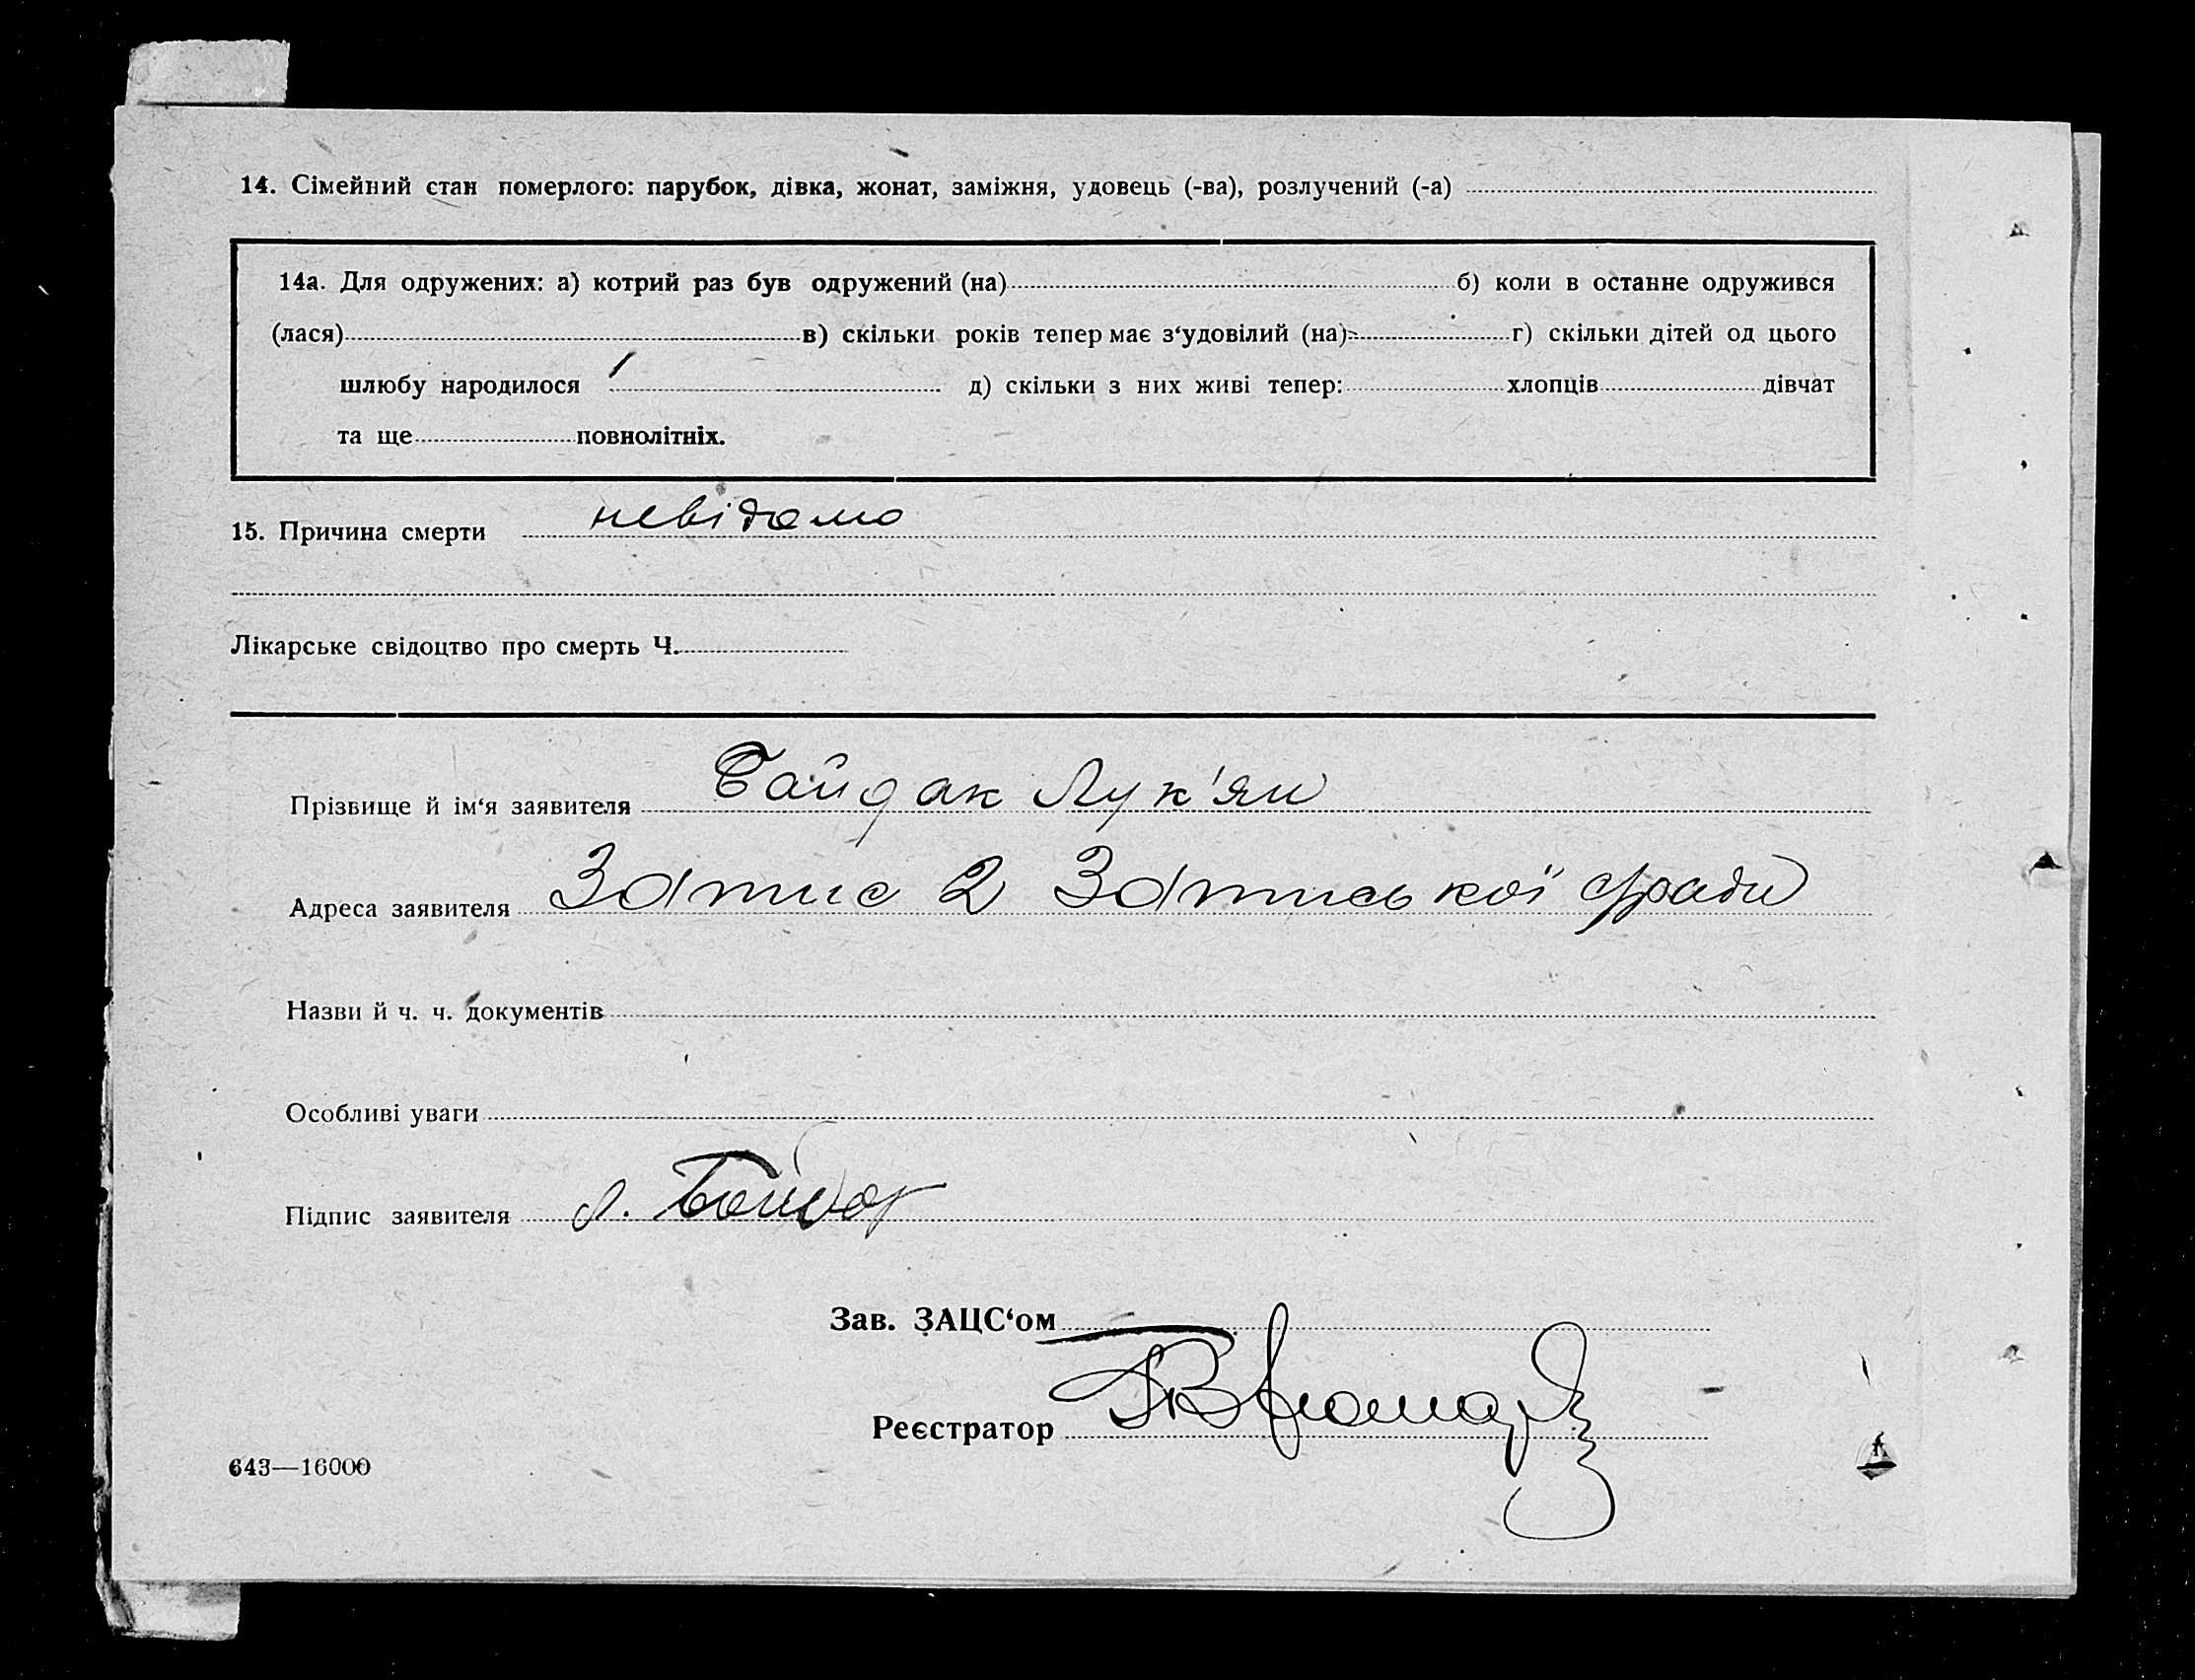 14. Сімейний стан померлого: парубок, дівка, жонат, заміжня, удовець (-ва), розлучений (-а)
14а. Для одружених: а) котрий раз був одружений (на) б) коли в останне одружився
(лася) в) скільки років тепер має з‘удовілий (на) г) скільки дітей од цього
шлюбу народилося / д) скільки з них живі тепер: хлопців дівчат
та ще повнолітніх.
15. Причина смерти невідомо
Лікарське свідоцтво про смерть Ч.
Прізвище й ім‘я заявителя Байдак Лук'ян
Адреса заявителя Затис 2 Затиської с/ради
Назви й ч. ч. документів
Особливі уваги
Підпис заявителя Л.
Зав. ЗАЦС‘ом
Реєстратор
643—16000